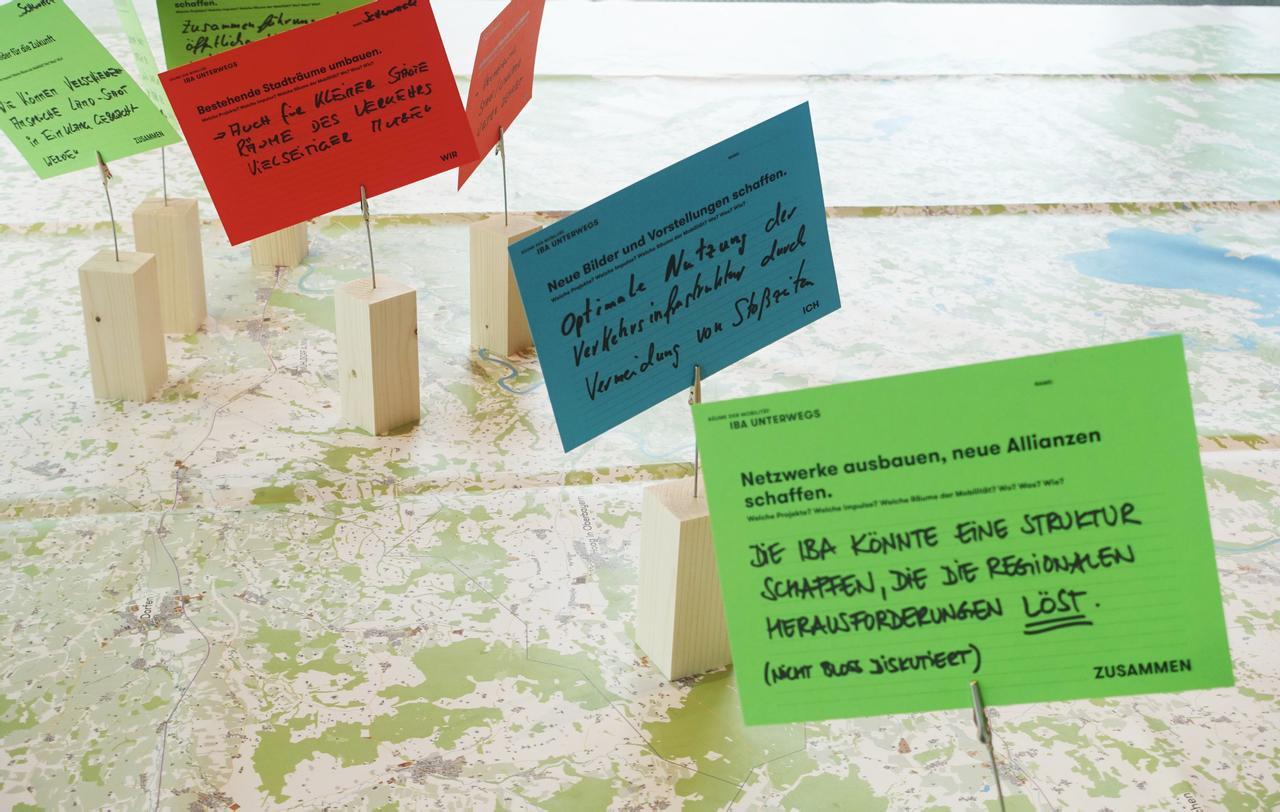 der für die Zukunft
WIE KÖNNEN
ANSPRÜCHE LAND-STADT
IN EINKLANG GEBRACHT
WERDEN
ZUSAMMEN
schaffen.
Zusammenführung
öffentliche
IBA UNTERWEGS
Bestehende Stadträume umbauen.
Welche Projekte? Welche Impulse? Welche Räume der Mobilität? Wo? Was? Wie?
→ AUCH FÜR KLEINER STÄDTE
RÄUME DES VERKEHRS
VIELSEITIGER NUTZEN
WIR
RÄUME DER MOBILITÄT
IBA UNTERWEGS
NAME:
Neue Bilder und Vorstellungen schaffen.
Welche Projekte? Welche Impulse? Welche Räume der Mobilität? Wo? Was? Wie?
Optimale Nutzung der
Verkehrsinfrastruktur durch
Vermeidung von Stoßzeiten
ICH
RÄUME DER MOBILITÄT
IBA UNTERWEGS
NAME:
Netzwerke ausbauen, neue Allianzen
schaffen.
Welche Projekte? Welche Impulse? Welche Räume der Mobilität? Wo? Was? Wie?
DIE IBA KÖNNTE EINE STRUKTUR
SCHAFFEN, DIE DIE REGIONALEN
HERAUSFORDERUNGEN LÖST.
(NICHT BLOSS DISKUTIERT)
ZUSAMMEN
Dorfen